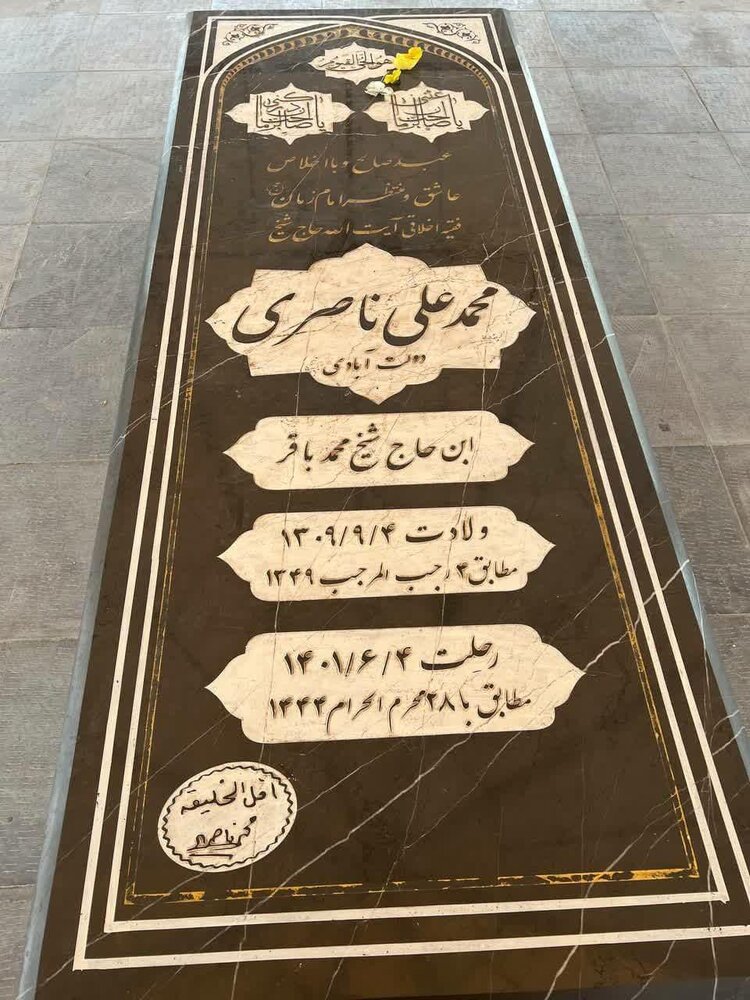 هو الحی القیوم
یا صاحب الزمان
یا صاحب الزمان ادرکنی
عبد صالح و با اخلاص
عاشق و منتظر امام زمان (عج)
فقیه اخلاقی آیت الله حاج شیخ
محمد علی ناصری
دولت آبادی
ابن حاج شیخ محمد باقر
ولادت ۱۳۰۹/۹/۴
مطابق ۴ رجب المرجب ۱۳۴۹
رحلت ۱۴۰۱/۶/۴
مطابق با ۲۸ محرم الحرام ۱۴۴۴
اقل الخلیقه
محمد ناصری